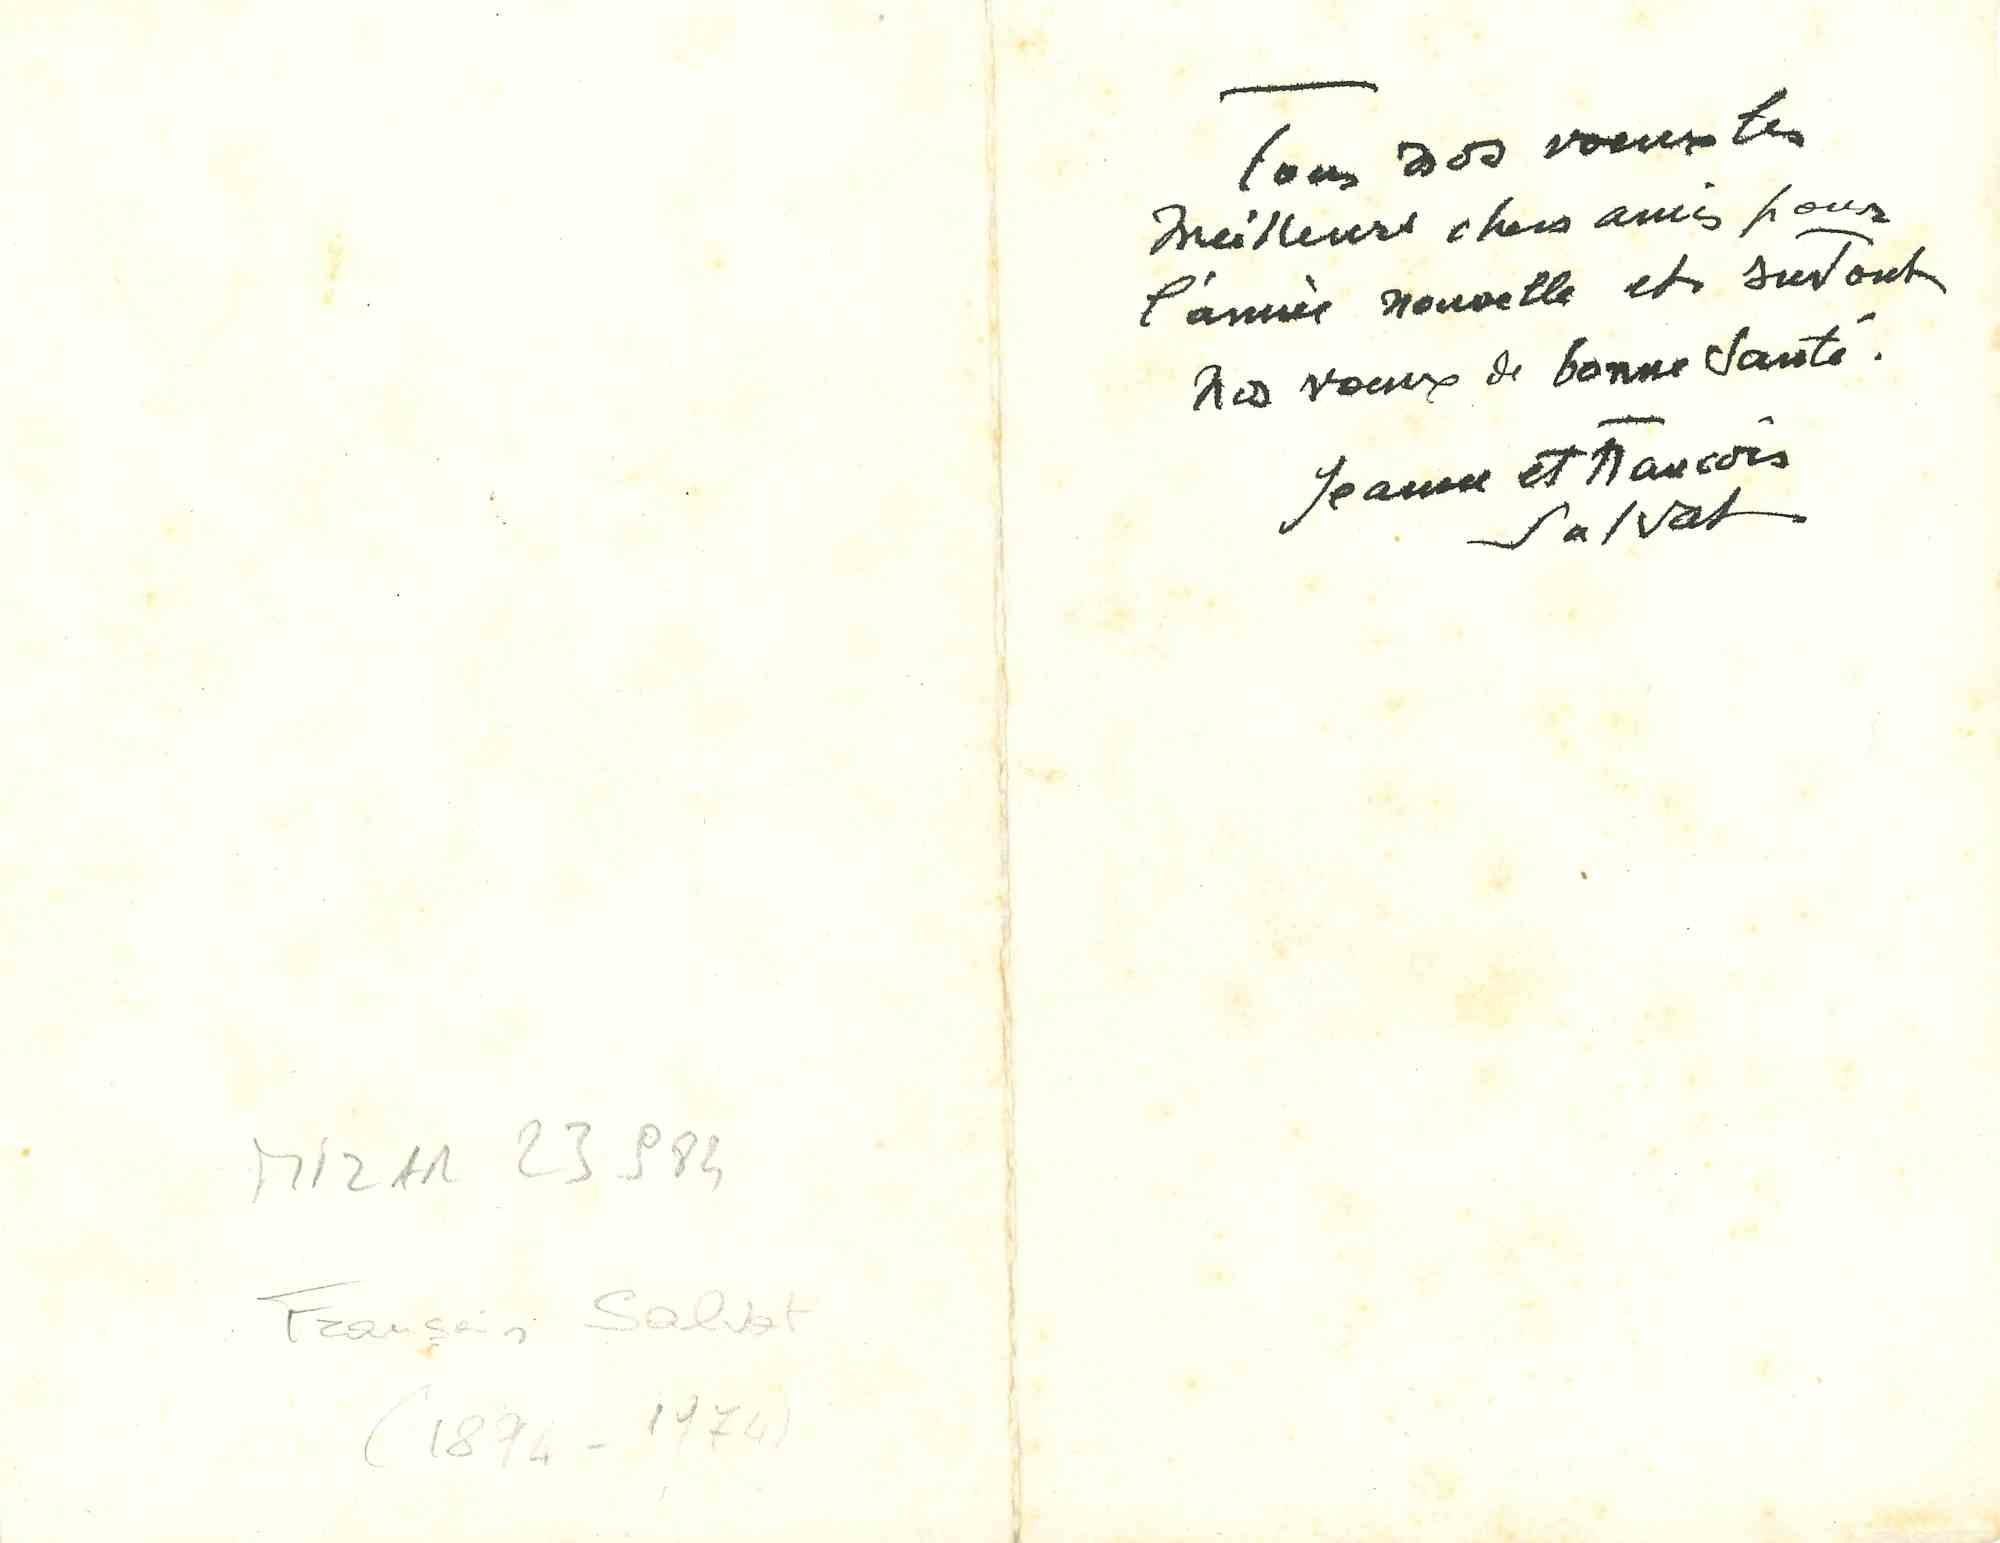 Tous nos voeux les
meilleurs chers amis pour
l'année nouvelle et surtout
nos voeux de bonne santé.
Jeanne et François
Salvat
MIZAR 23 984
François Salvat
(1894 - 1974)